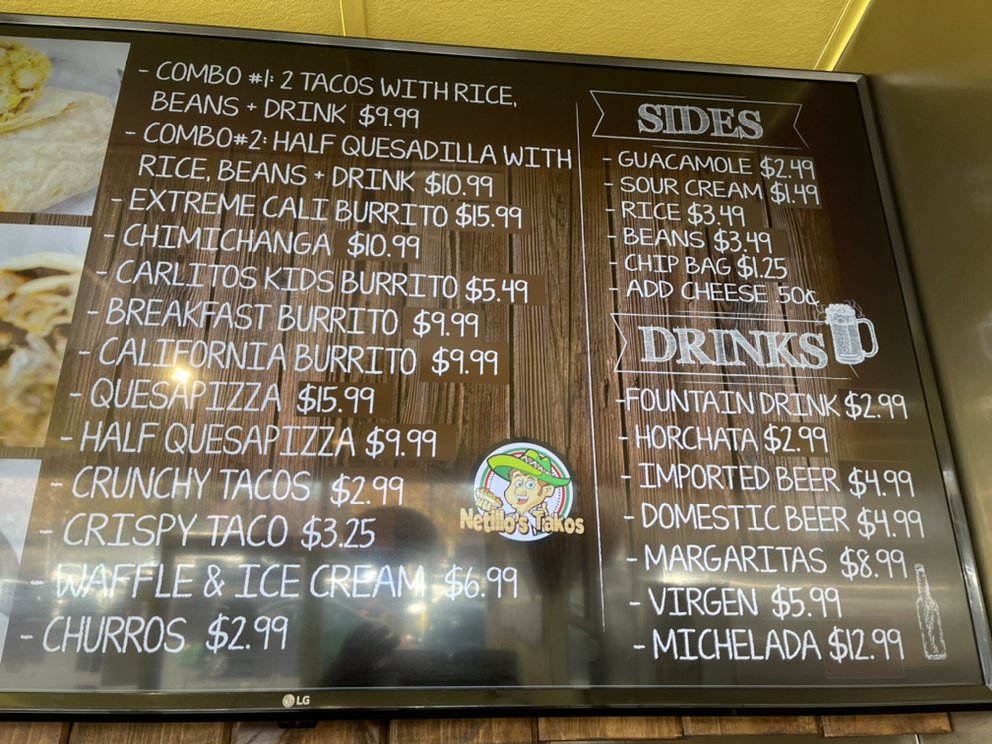 - COMBO #1: 2 TACOS WITH RICE,
BEANS + DRINK $9.99
- COMBO#2: HALF QUESADILLA WITH
RICE, BEANS + DRINK $10.99
- EXTREME CALI BURRITO $15.99
- CHIMICHANGA $10.99
- CARLITOS KIDS BURRITO $5.49
- BREAKFAST BURRITO $9.99
- CALIFORNIA BURRITO $9.99
- QUESAPIZZA $15.99
- HALF QUESAPIZZA $9.99
- CRUNCHY TACOS $2.99
- CRISPY TACO $3.25
- WAFFLE & ICE CREAM $6.99
- CHURROS $2.99
Netillo's Takos
SIDES
- GUACAMOLE $2.49
- SOUR CREAM $1.49
- RICE $3.49
- BEANS $3.49
- CHIP BAG $1.25
- ADD CHEESE 50¢
DRINKS
-FOUNTAIN DRINK $2.99
- HORCHATA $2.99
- IMPORTED BEER $4.99
- DOMESTIC BEER $4.99
- MARGARITAS $8.99
- VIRGEN $5.99
- MICHELADA $12.99
LG